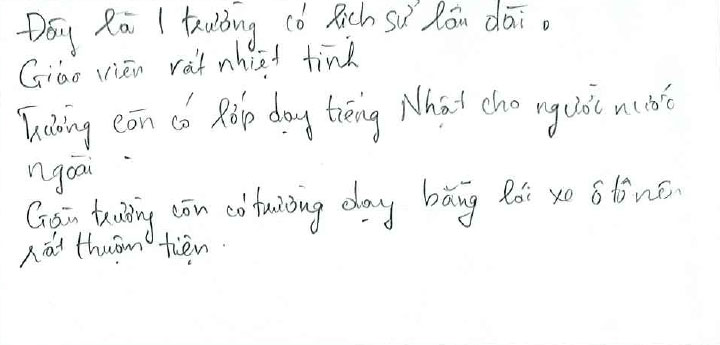 Đây là 1 trường có lịch sử lâu dài.
Giáo viên rất nhiệt tình
Trường còn có lớp dạy tiếng Nhật cho người nước
ngoài.
Gần trường còn có trường dạy bằng lái xe ô tô nên
rất thuận tiện.